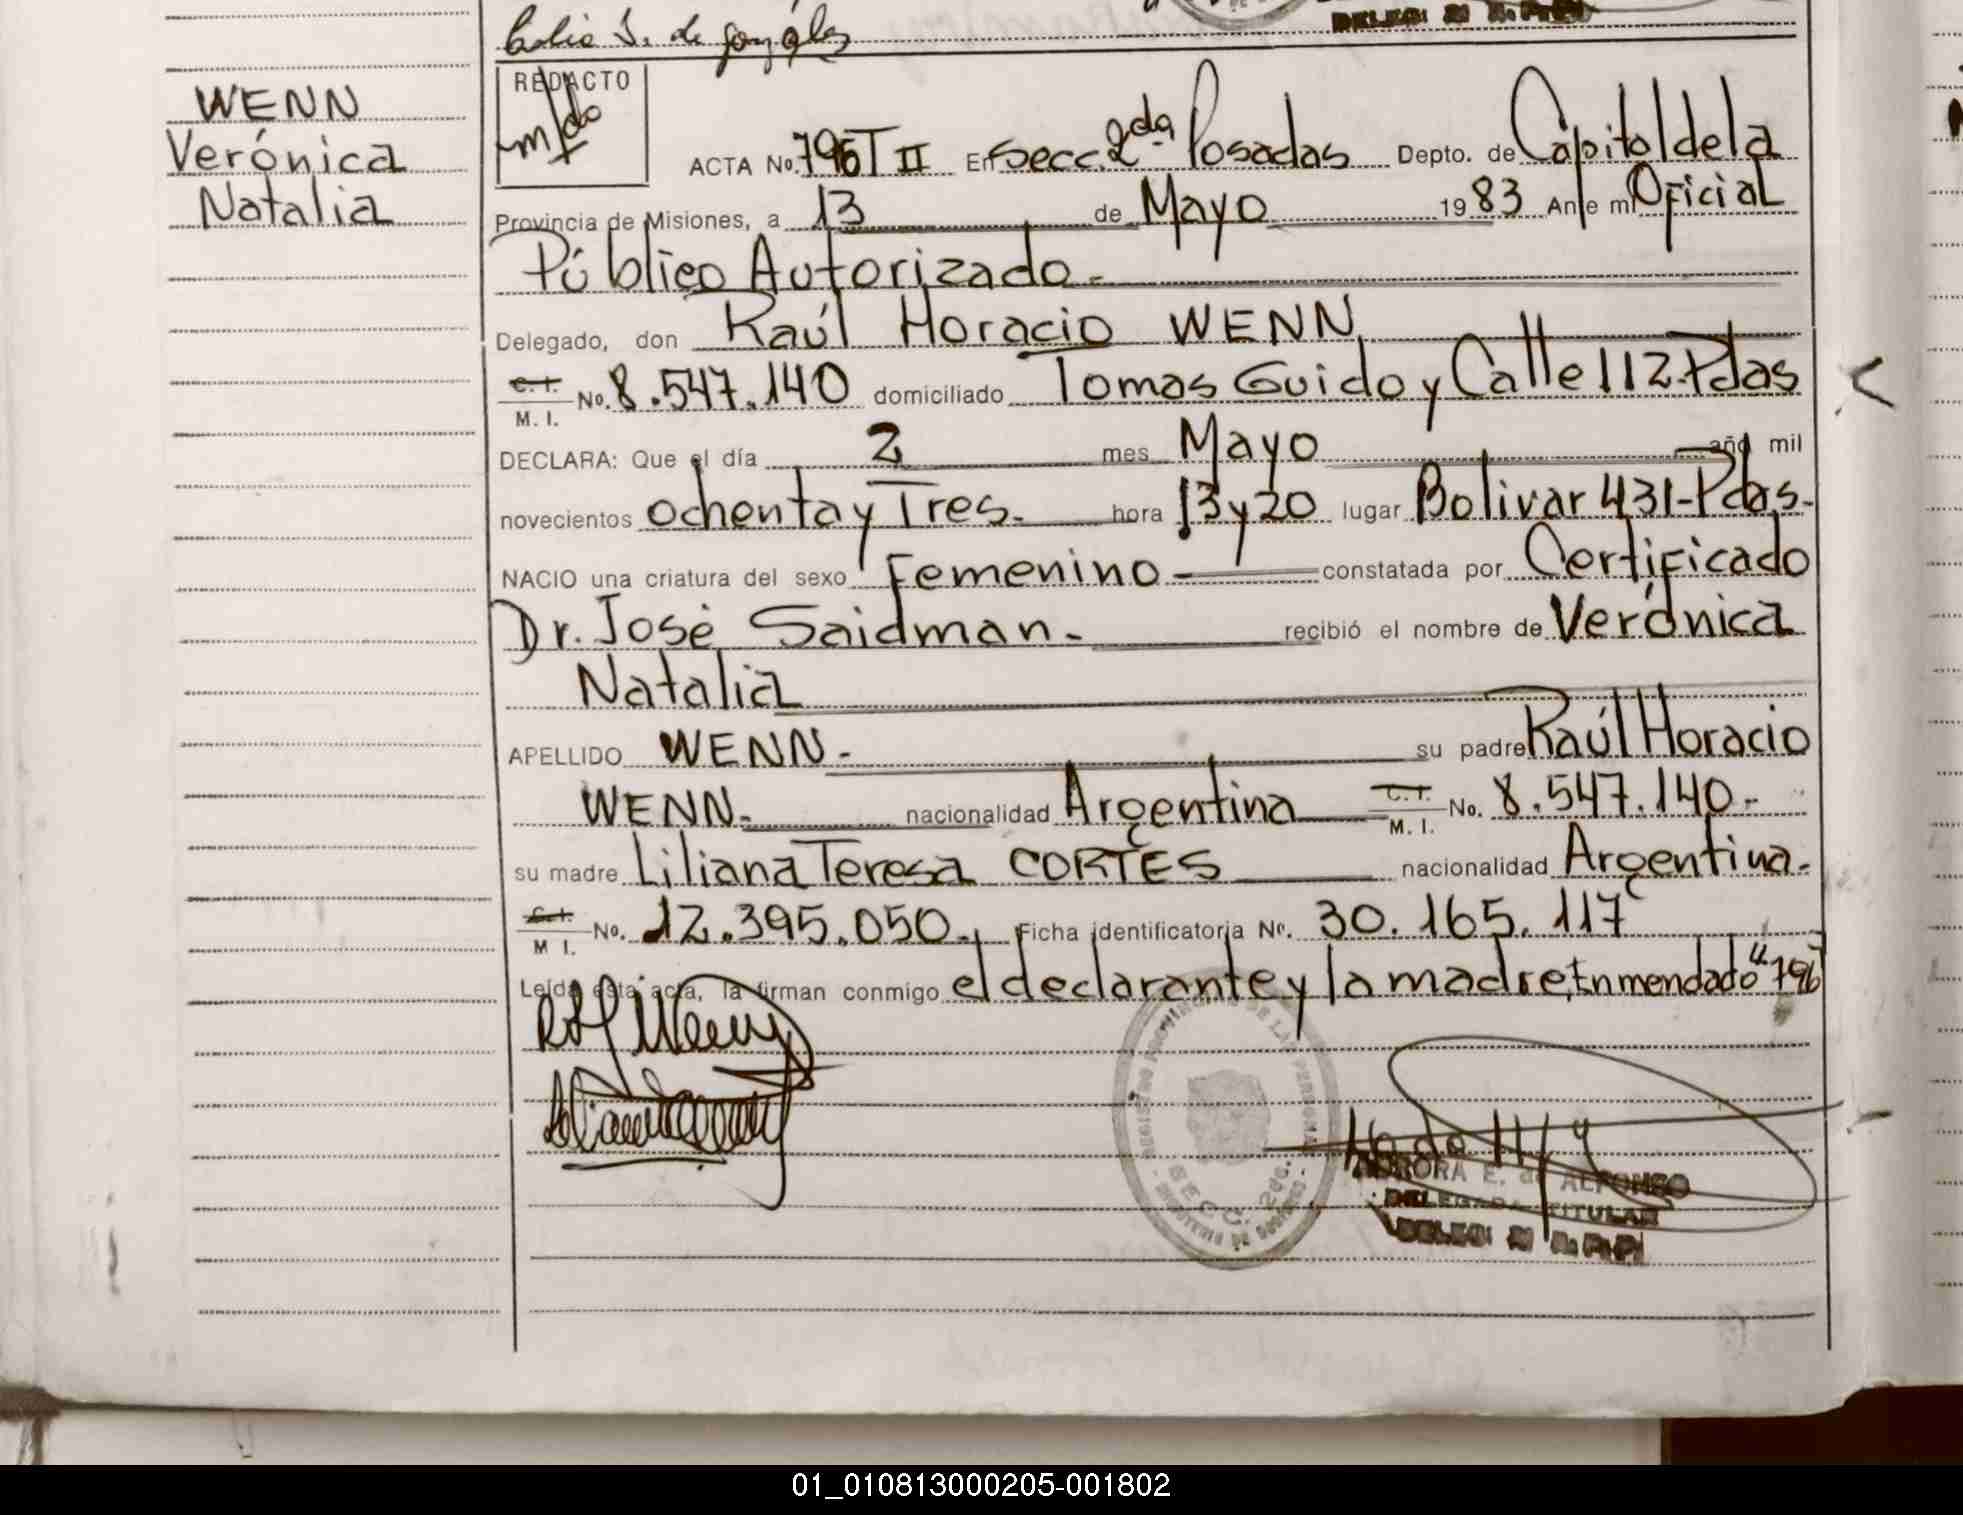 Celia S. de González
DELEG: M R.P.P.
WENN
Verónica
Natalia
REDACTO
ACTA No. 796 T II En Secc. 2da. Posadas Depto. de Capital de la
Provincia de Misiones, a 13 de Mayo 1983 Ante mi Oficial
Público Autorizado.-
Delegado, don Raúl Horacio WENN
C. I.
M. I. No. 8.547.140 domiciliado Tomas Guido y Calle 112-Pdas
DECLARA: Que el día 2 mes Mayo año mil
novecientos ochenta y Tres.- hora 13 y 20 lugar Bolivar 431-Pdas.-
NACIO una criatura del sexo Femenino - constatada por Certificado
Dr. José Saidman.- recibió el nombre de Verónica
Natalia
APELLIDO WENN.- su padre Raúl Horacio
WENN.- nacionalidad Argentina C. I.
M. I. No. 8.547.140.-
su madre Liliana Teresa CORTES nacionalidad Argentina.-
C. I.
M I. No. 12.395.050.- Ficha identificatoria No. 30.165.117
Leída esta acta, la firman conmigo el declarante y la madre, Enmendado "796"
REGISTRO PROVINCIAL DE LAS PERSONAS
SECC. 2da.
MINISTERIO DE GOBIERNO
AURORA E. de ALFONSO
DELEGADA TITULAR
DELEG: M R.P.P.
01_010813000205-001802